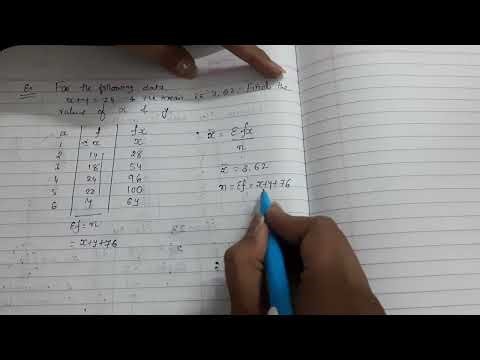 Ex For the following data
x+y = 24 & the mean is 3.62. Find the
value of x & y
x f fx
1 x x
2 14 28
3 18 54
4 24 96
5 20 100
6 y 6y
Σf = n
= x+y+76
x̄ = Σfx
n
x̄ = 3.62
n = Σf = x+y+76